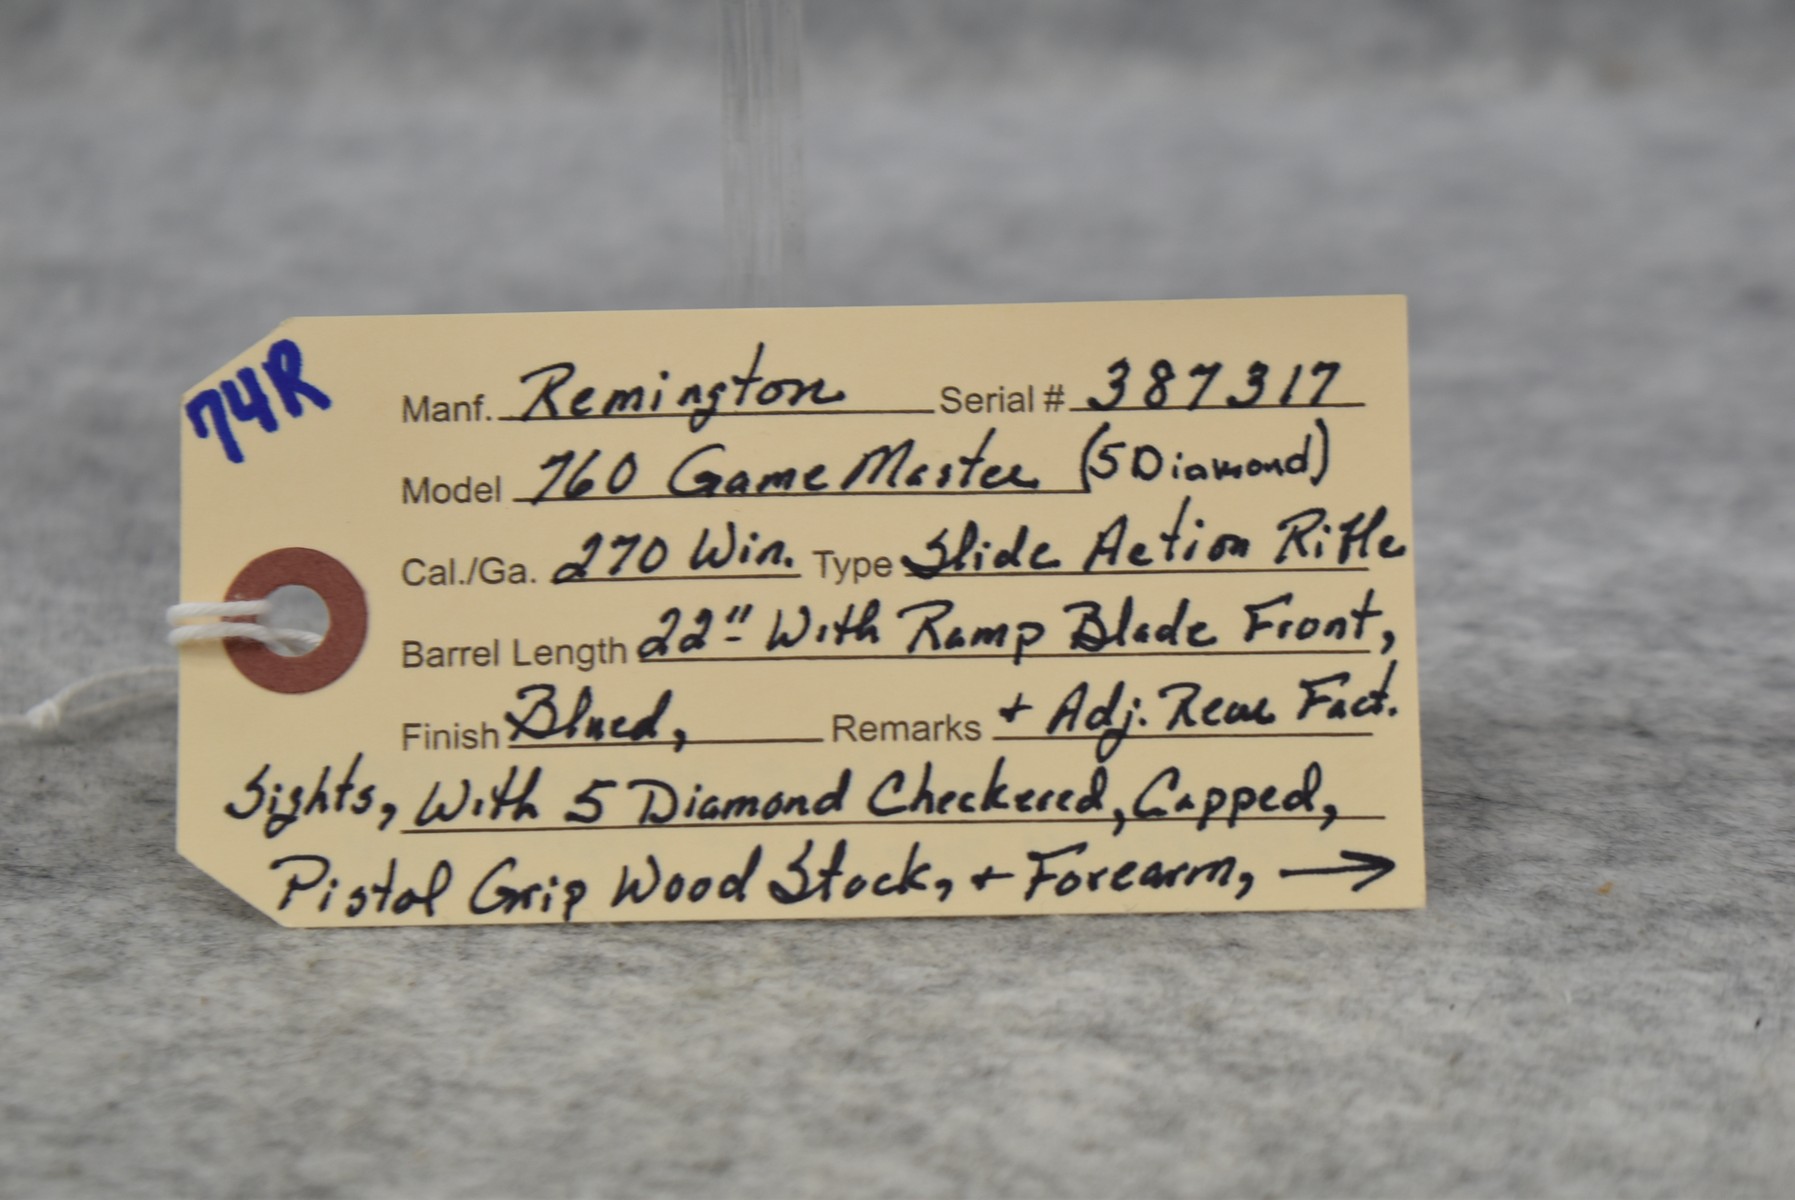 74R
Manf. Remington Serial # 387317
Model 760 GameMaster (5 Diamond)
Cal./Ga. 270 Win. Type Slide Action Rifle
Barrel Length 22" With Ramp Blade Front,
Finish Blued, Remarks + Adj. Rear Fact.
Sights, With 5 Diamond Checkered, Capped,
Pistol Grip Wood Stock, + Forearm, →